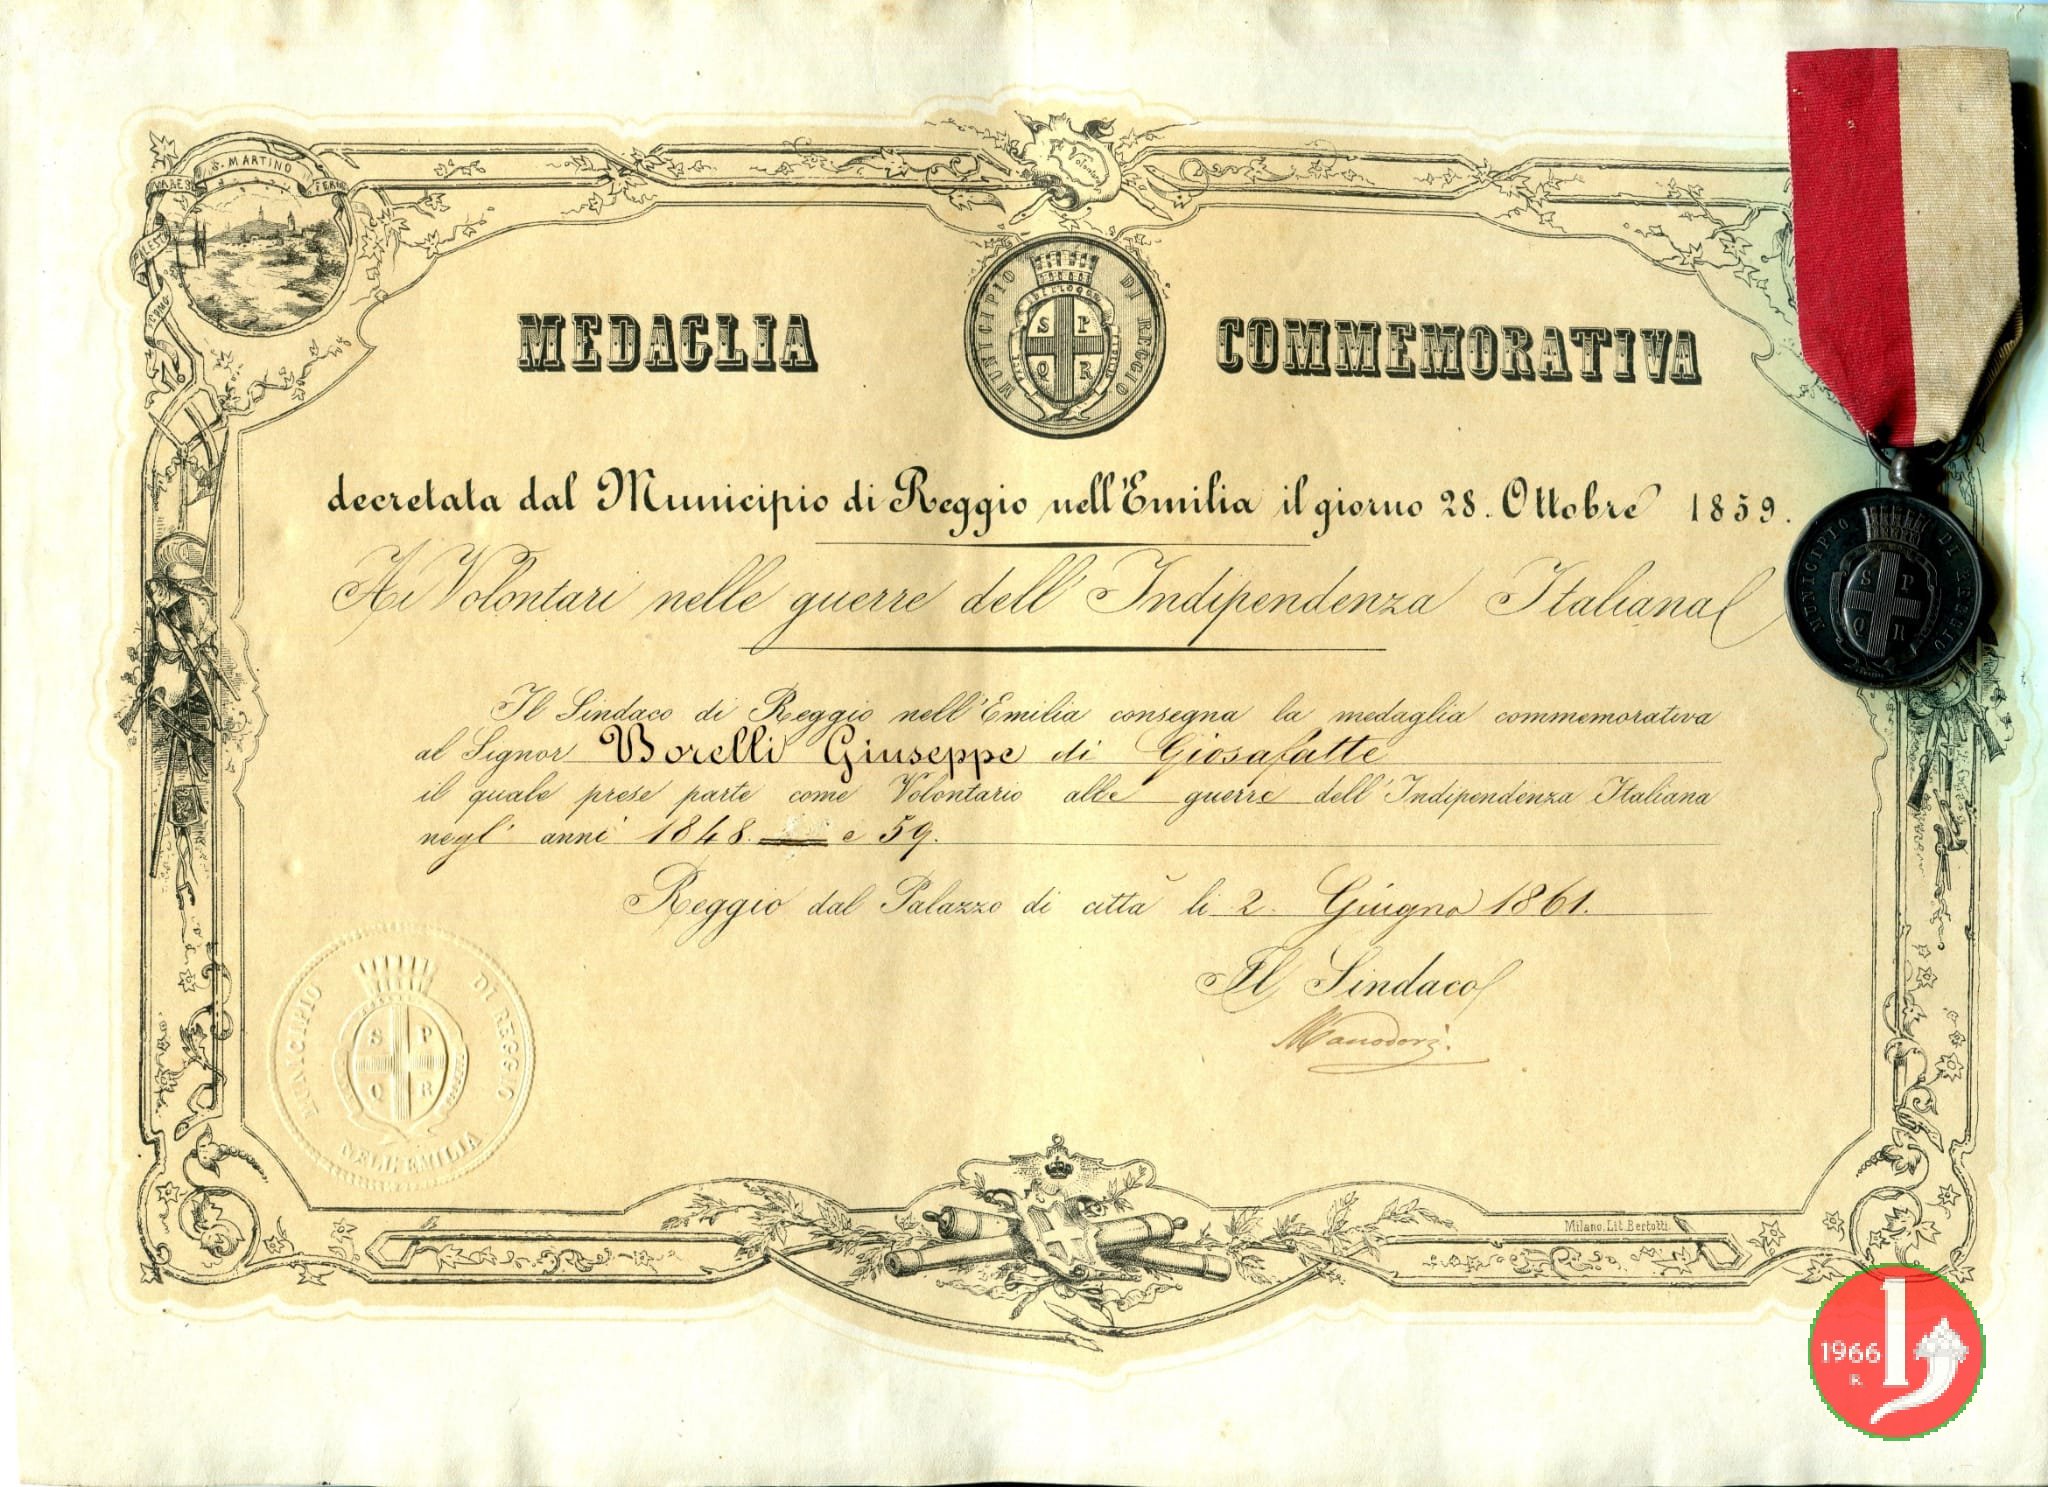 S. MARTINO
VARESE
PALESTRO
COMO
Volontari
MUNICIPIO DI REGGIO
S P
Q R
MEDAGLIA COMMEMORATIVA
decretata dal Municipio di Reggio nell'Emilia il giorno 28. Ottobre 1859.
Ai Volontari nelle guerre dell'Indipendenza Italiana
MUNICIPIO DI REGGIO
S P
Q R
Il Sindaco di Reggio nell'Emilia consegna la medaglia commemorativa
al Signor Borelli Giuseppe di Giosafatte
il quale prese parte come Volontario alle guerre dell'Indipendenza Italiana
negl' anni 1848. e 59.
Reggio dal Palazzo di città li 2. Giugno 1861.
Il Sindaco
Manodori.
MUNICIPIO DI REGGIO
NELL'EMILIA
S P
Q R
Milano. Lit. Bertotti.
1966
R